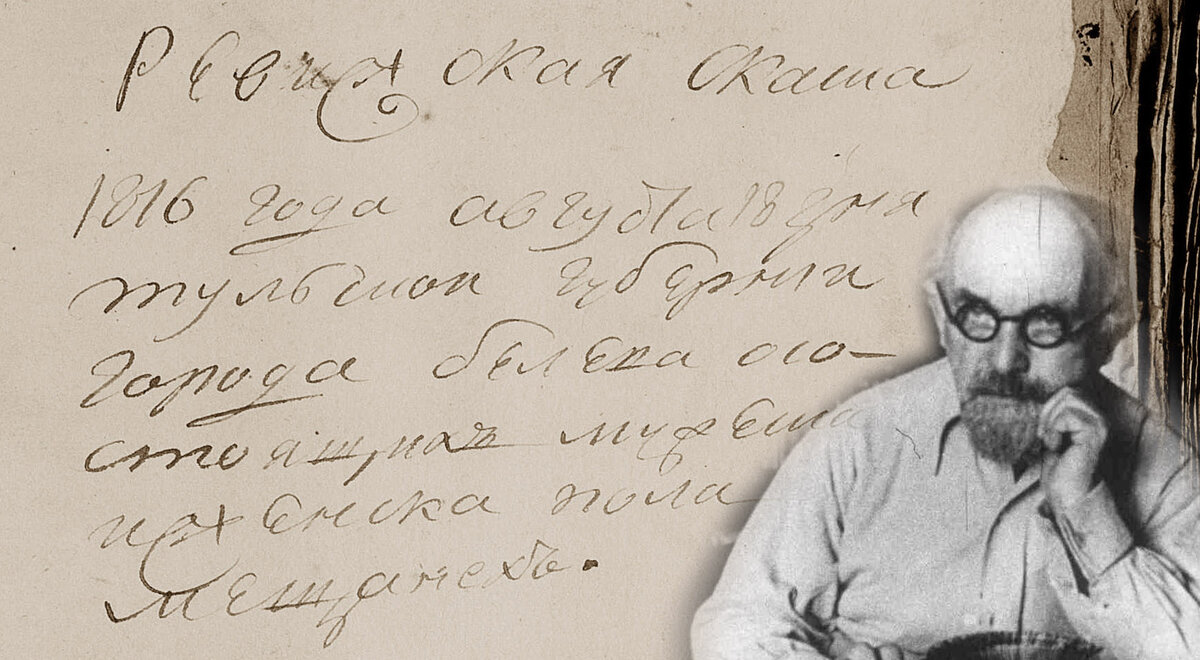 Ревижская Скаска
1816 года августа 18 дня
тульскои губернии
города белева со-
стоящих мужеска
и женска пола
мещанехъ.